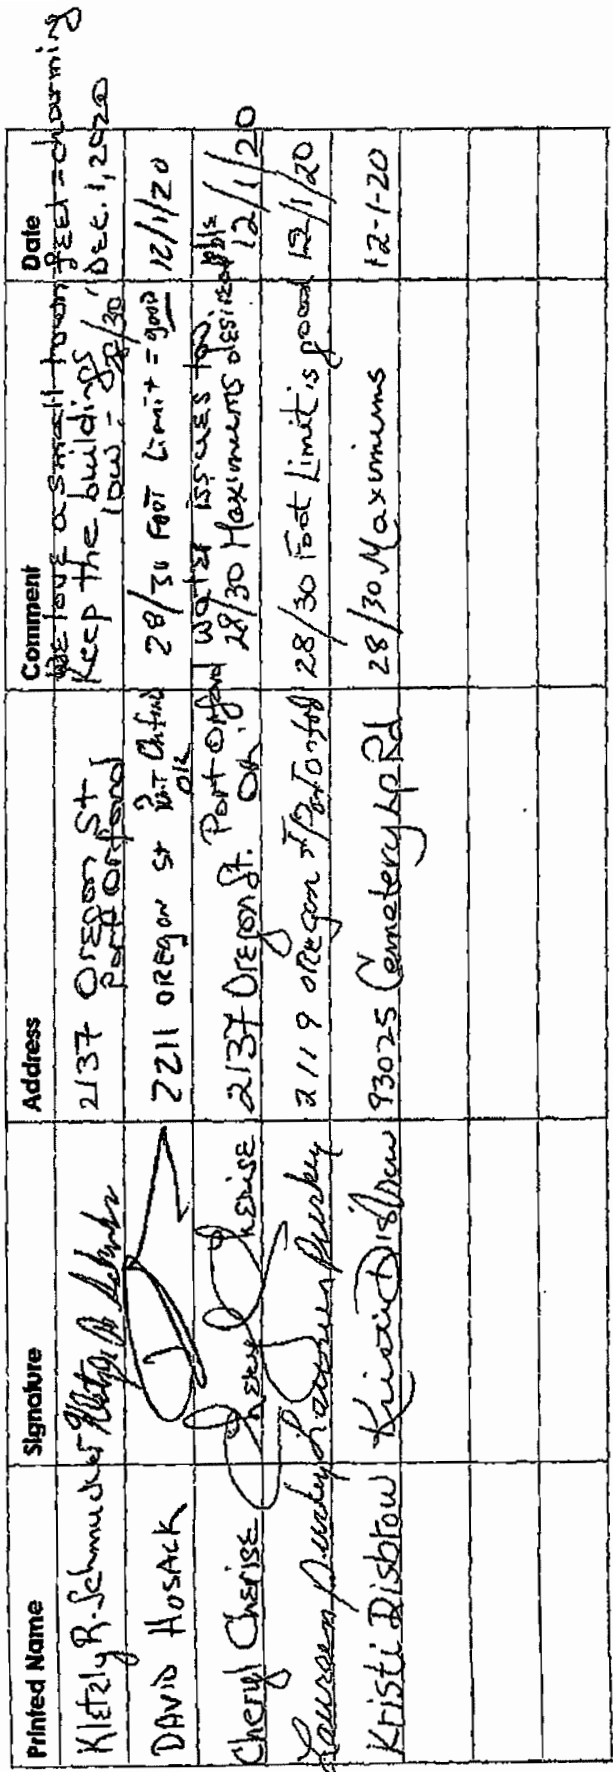 Printed Name Signature Address Comment Date
Kletzly R. Schmucker 2137 Oregon St Port Orford We love a small town feel = charming Keep the buildings low - 28/30 Dec. 1, 2020
DAVID HOSACK 2211 OREGON St Port Orford OR 28/30 FOOT Limit = good 12/1/20
Cheryl Cherise Cheryl Cherise 2137 Oregon St. Port Orford OR. Water issues too 28/30 Maximums desirable 12/1/20
Laureen Purkey Laureen Purkey 2119 Oregon St Port Orford 28/30 Foot Limit is good 12/1/20
Kristi Disbrow Kristi Disbrow 93025 Cemetery Lp Rd 28/30 Maximums 12-1-20